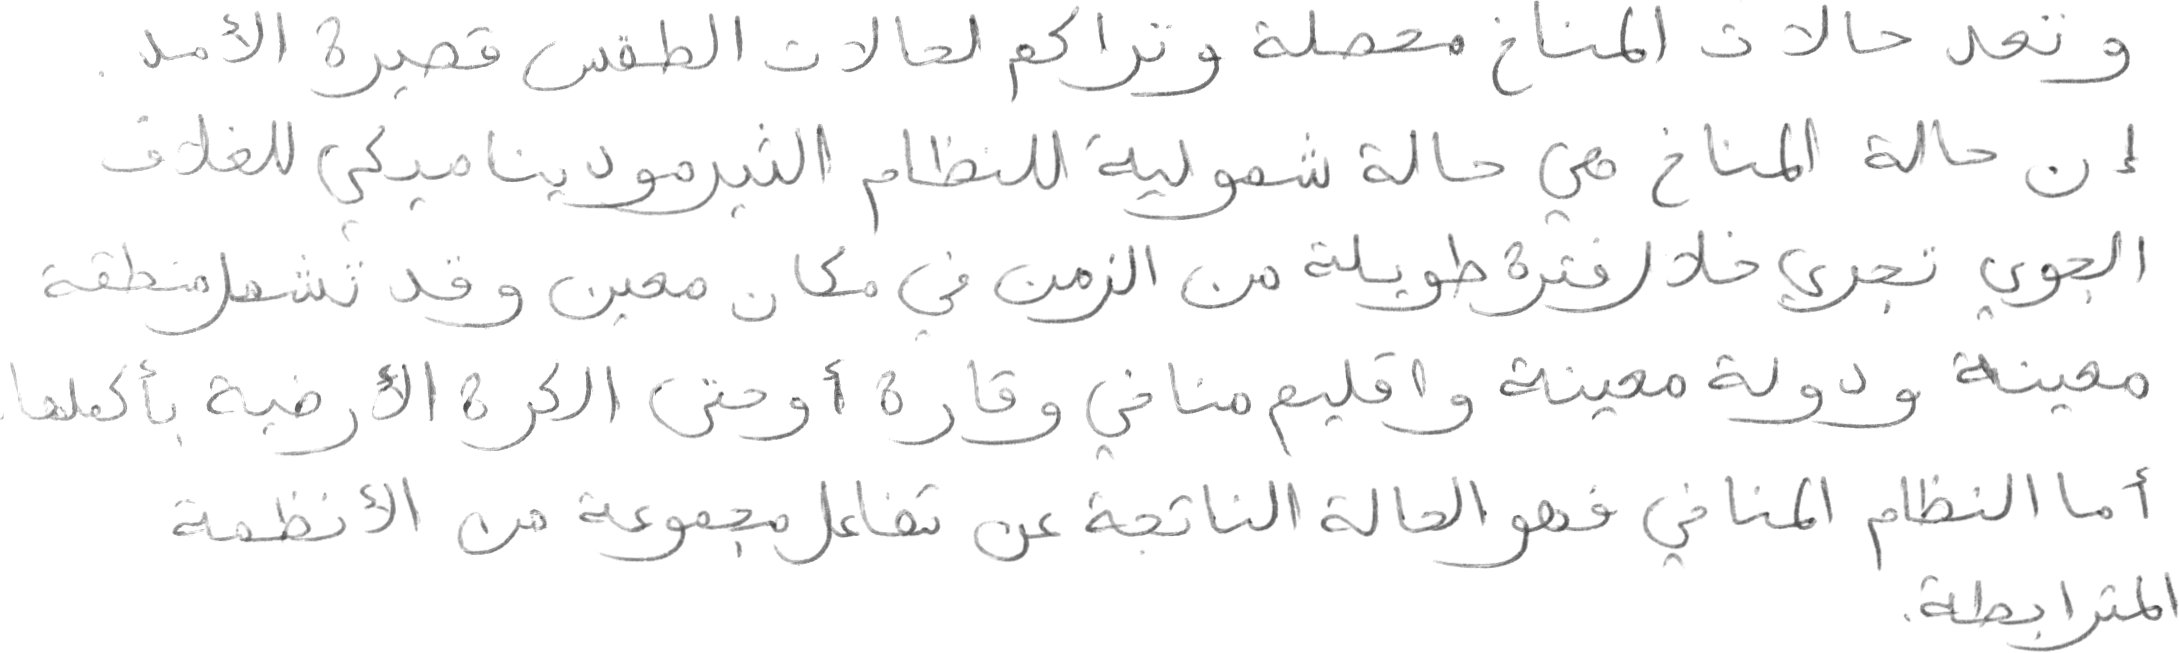 وتعد حالات المناخ محصلة وتراكم لحالات الطقس قصيرة الأمد.
إن حالة المناخ هي حالة شمولية للنظام الثيرموديناميكي للغلاف
الجوي تجري خلال فترة طويلة من الزمن في مكان معين وقد تشمل منطقة
معينة ودولة معينة واقليم مناخي وقارة أو حتى الكرة الأرضية بأكملها.
أما النظام المناخي فهو الحالة الناتجة عن تفاعل مجموعة من الأنظمة
المترابطة.